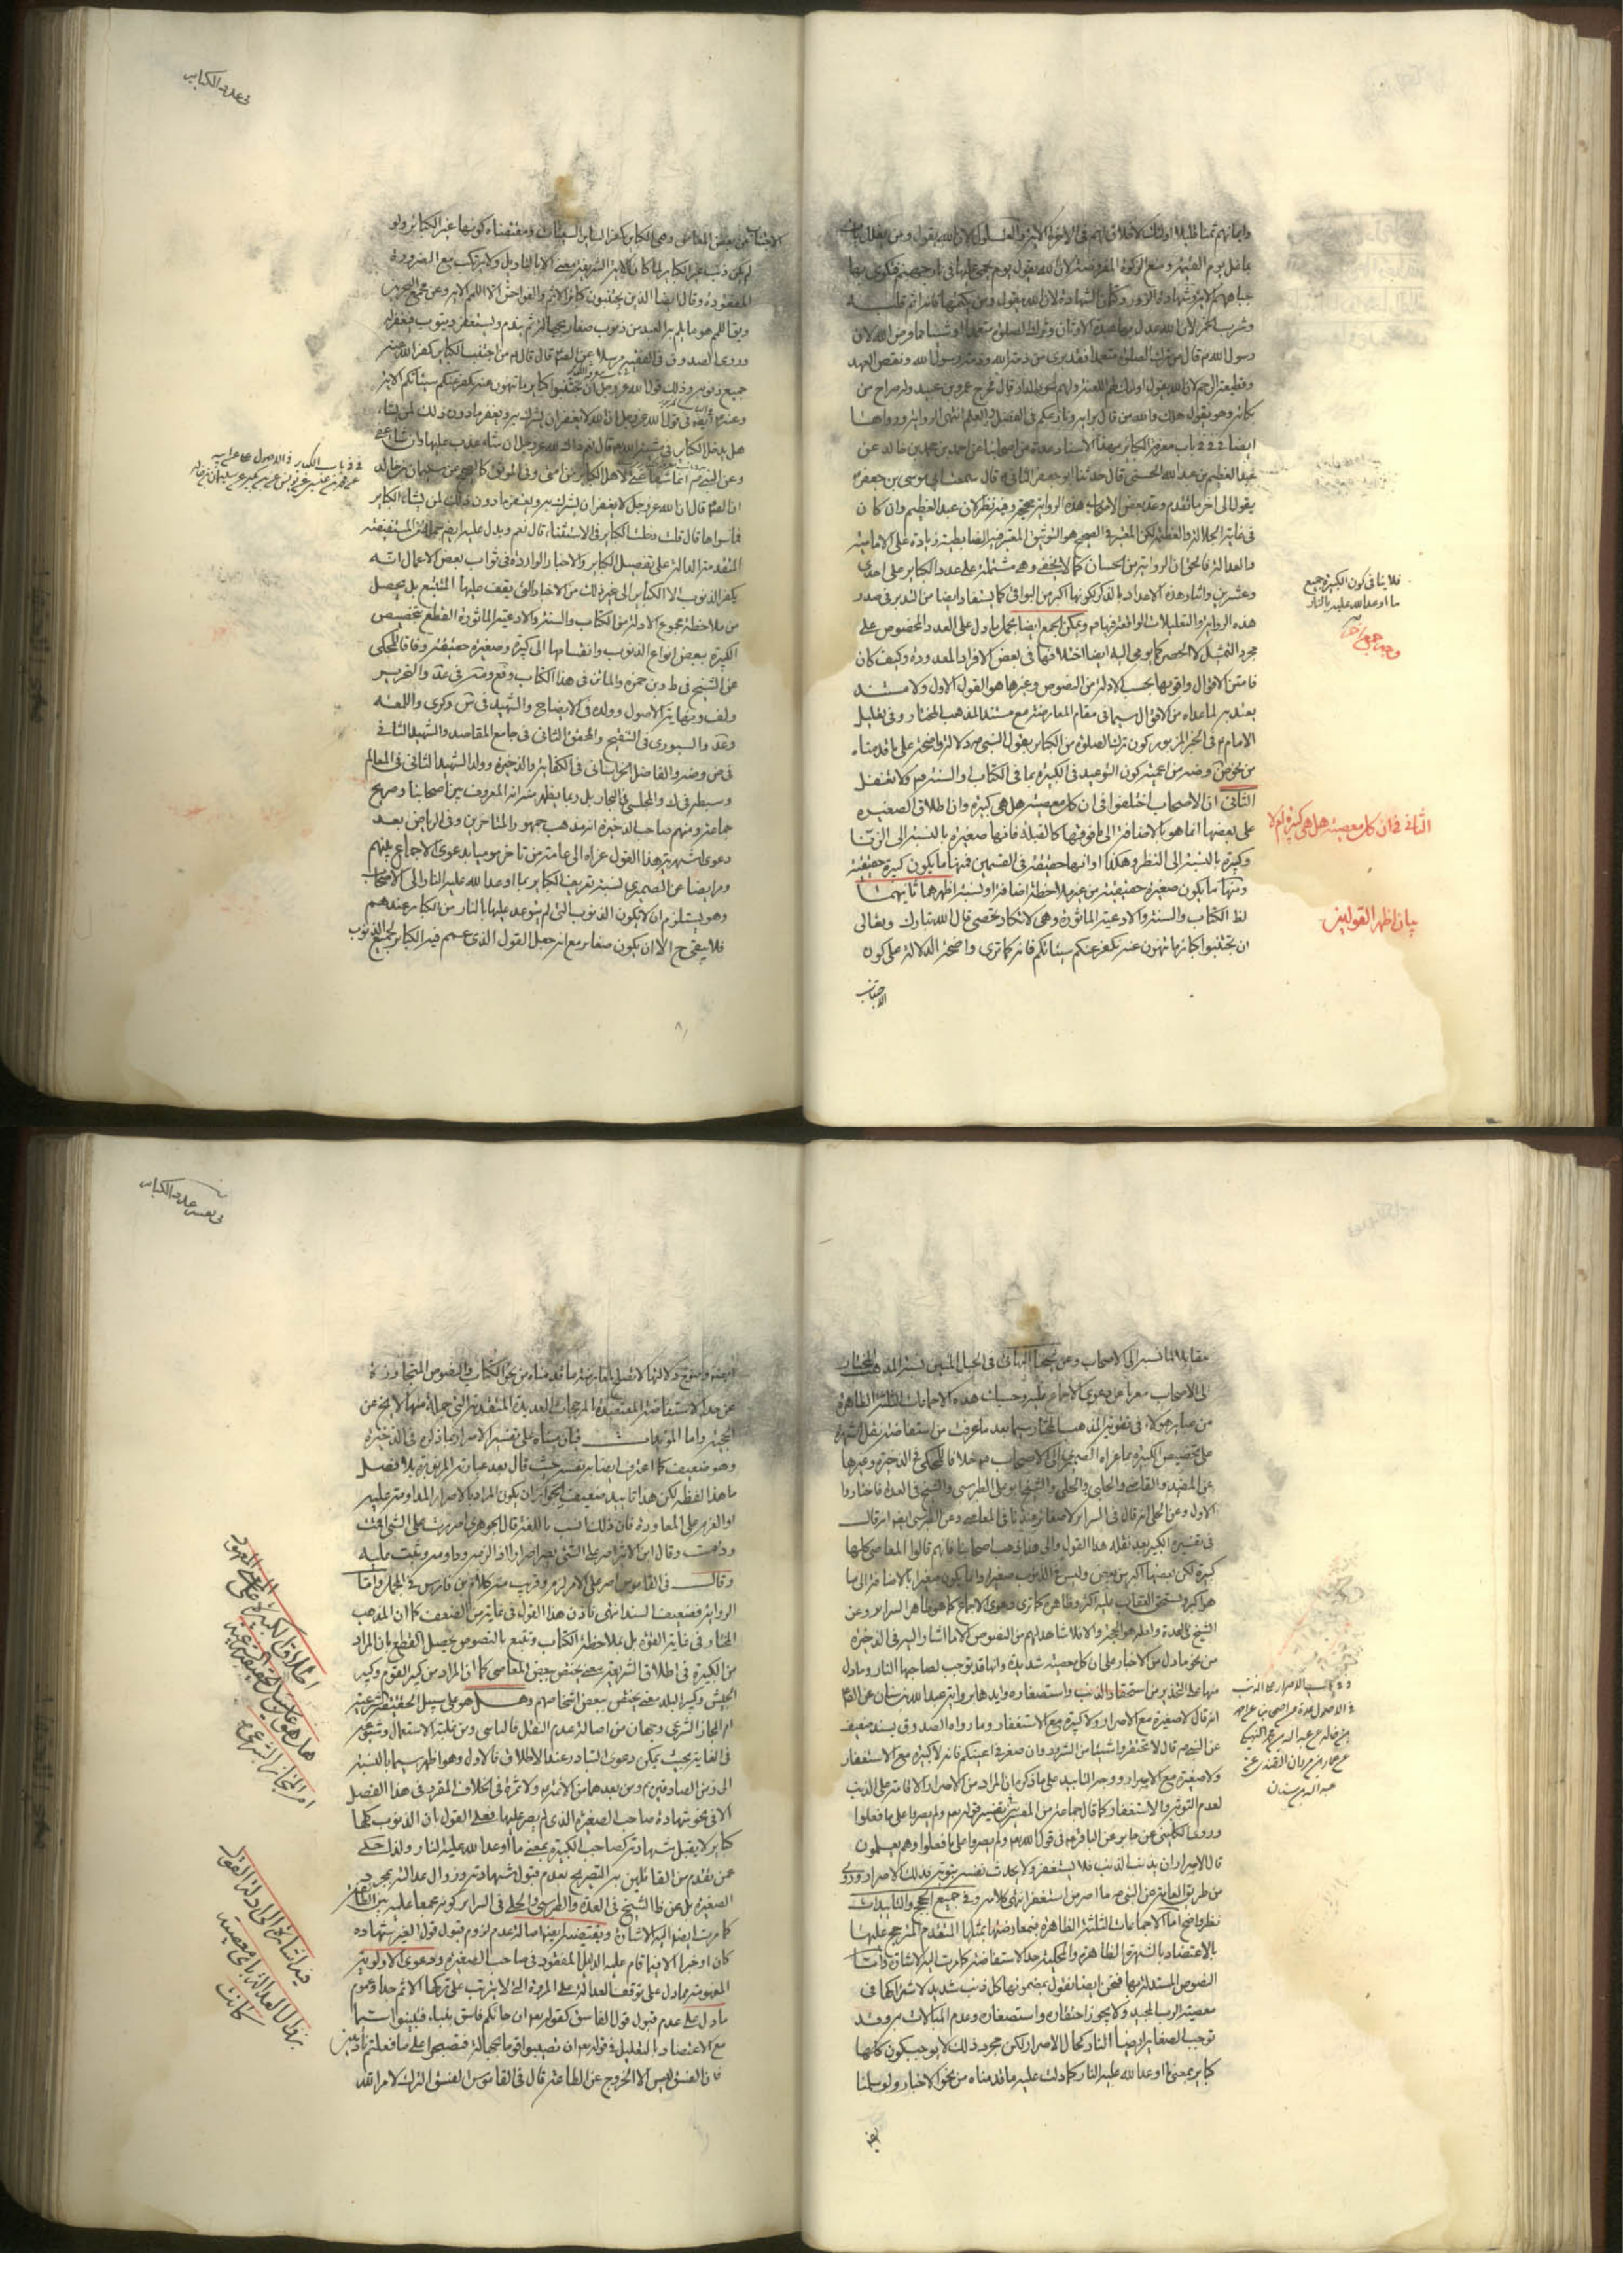 وايمانهم ثمنا قليلا اولئك لاخلاق لهم فى الاخرة الاية والغلول لان الله يقول ومن يغلل يات
بما غل يوم القيمة ومنع الزكوة المفروضة لان الله يقول يوم يحمى عليها فى نار جهنم فتكوى بها
جباههم الاية وشهادة الزور وكتمان الشهادة لان الله يقول ومن يكتمها فانه اثم قلبه
وشرب الخمر لان الله عدل بها عبادة الاوثان وترك الصلوة متعمدا او شيئا مما فرض الله لان
رسول الله ص قال من ترك الصلوة متعمدا فقد برئ من ذمة الله وذمة رسول الله ونقض العهد
وقطيعة الرحم لان الله يقول اولئك لهم اللعنة ولهم سوء الدار قال فخرج عمرو بن عبيد وله صراخ من
بكائه وهو يقول هلك والله من قال برايه ونازعكم فى الفضل والعلم انتهى الرواية ورواها
ايضا فى باب معرفة الكبائر بهذا الاسناد عدة من اصحابنا عن احمد بن محمد بن خالد عن
عبد العظيم بن عبد الله الحسنى قال حدثنا ابو جعفر الثانى قال سمعت ابى موسى بن جعفر
يقول الى اخر ما تقدم وعد بعض الاواخر هذه الرواية صحيحة وفيه نظر لان عبد العظيم وان كان
فى غاية الجلالة والعظمة لكن المعتبر فى الصحيح هو التوثيق المعتبر فيه الضابطية زيادة على الامامية
والعدالة فالحق ان الرواية من الحسان كما لا يخفى وهى مشتملة على عدد الكبائر على احدى
وعشرين وايثار هذه الاعداد بالذكر لكونها اكبر من البواقى كما يستفاد ايضا من التدبر فى صدر
هذه الرواية والتعليلات الواقعة فيها م ويمكن الجمع ايضا بحمل ما دل على العدد المخصوص على
مجرد التمثيل لا الحصر كما يومى اليه ايضا اختلافها فى بعض الافراد المعدودة وكيف كان
فامتن الاقوال واقويها بحسب الادلة من النصوص وغيرها هو القول الاول ولا مستند
يعتد به لما عداه من الاقوال سيما فى مقام المعارضة مع مستند المذهب المختار وفى تعليل
الامام ع فى الخبر المزبور كون ترك الصلوة من الكبائر بقول النبى ص دلالة واضحة على ما قدمناه
الثانى ان الاصحاب اختلفوا فى ان كل معصية هل هى كبيرة وان اطلاق الصغيرة
على بعضها انما هو بالاضافة الى ما فوقها كالقبلة فانها صغيرة بالنسبة الى الزنا
وكبيرة بالنسبة الى النظر وهكذا او انها حقيقة فى القسمين فمنها ما يكون كبيرة حقيقية
ومنها ما يكون صغيرة حقيقية من غير ملاحظة اضافة او نسبة اظهرهما ثانيهما
لظ الكتاب والسنة والادعية الماثورة وهى لاتكاد تحصى قال الله تبارك وتعالى
ان تجتنبوا كبائر ما تنهون عنه نكفر عنكم سيئاتكم فانه كما ترى واضحة الدلالة على كون
الاجتناب
فلا ينافى كون الكبيرة جميع
ما اوعد الله عليه بالنار
وجه جمع اخر
الثانى فى ان كل معصية هل هى كبيرة ام لا
بيان اظهر القولين
فى عدد الكبائر
الاجتناب عن بعض المعاصى وهى الكبائر مكفرا لسائر السيئات ومقتضاه كونها غير الكبائر ولو
لم يكن ذنب غير الكبائر لما كان للاية الشريفة معنى الا بالتاويل ولا يرتكب مع الضرورة
المفقودة وقال ايضا الذين يجتنبون كبائر الاثم والفواحش الا اللمم الاية وعن مجمع البحرين
ويق اللمم هو ما يلم به العبد من ذنوب صغار بجهالة ثم يندم ويستغفر ويتوب فيغفر له
وروى الصدوق فى الفقيه مرسلا عن الص قال قال من اجتنب الكبائر كفر الله عنه
جميع ذنوبه وذلك قول الله عز وجل ان تجتنبوا كبائر ما تنهون عنه نكفر عنكم سيئاتكم الاية
وعنه ايضا فى قول الله عز وجل ان الله لا يغفر ان يشرك به ويغفر ما دون ذلك لمن يشاء
هل يدخل الكبائر فى مشية الله قال نعم ذاك لله عز وجل ان شاء عذب عليها وان شاء عفى
وعن النبى ص انما شفاعتى لاهل الكبائر من امتى وفى الموثق كالصحيح عن سليمان بن خالد
ان الص قال ان الله عز وجل لا يغفر ان يشرك به ويغفر ما دون ذلك لمن يشاء الكبائر
فما سواها قال قلت دخلت الكبائر فى الاستثناء قال نعم ويدل عليه ايضا جملة من المستفيضة
المتقدمة الدالة على تفصيل الكبائر والاخبار الواردة فى ثواب بعض الاعمال انه
يكفر الذنوب الا الكبائر الى غير ذلك من الاخبار التى يقف عليها المتتبع بل يحصل
من ملاحظة مجموع الادلة من الكتاب والسنة والادعية الماثورة القطع بتخصيص
الكبيرة ببعض انواع الذنوب وانقسامها الى كبيرة وصغيرة حقيقة وفاقا للمحكى
عن الشيخ فى ط وبن حمزة والماتن فى هذا الكتاب وفع ومة فى عد والتحرير
ولف ونهاية الاصول وولده فى الايضاح والشهيد فى س وكرى واللمعة
وعد والسيورى فى التنقيح والمحقق الثانى فى جامع المقاصد والشهيد الثانى
فى ض وضه والفاضل الخراسانى فى الكفاية والذخيرة وولد الشهيد الثانى فى المعالم
وسبطه فى ك والمجلسى فى البحار بل ربما يظهر منه انه المعروف بين اصحابنا وصرح
جماعة ومنهم صاحب الذخيرة انه مذهب جمهور المتاخرين وفى الرياض بعد
دعوى شهرة هذا القول عزاه الى عامة من تاخر موميا بدعوى الاجماع عليهم
ومر ايضا عن الصيمرى نسبة تعريف الكبائر بما اوعد الله عليه النار الى الاصحاب
وهو يستلزم ان لا يكون الذنوب التى لم يتوعد عليها بالنار من الكبائر عندهم
فلا يبقى ح الا ان يكون صغاير مع انه جعل القول الذى عمم فيه الكبائر لجميع الذنوب
مقابلا لما نسبه الى الاصحاب وعن شيخنا البهائى فى الحبل المتين نسبة المذهب المختار
الى الاصحاب معربا عن دعوى الاجماع عليه وحسبك هذه الاجماعات الثلثة الظاهرة
من عبائر هؤلاء فى تقوية المذهب المختار سيما بعد ما عرفت من استفاضة نقل الشهرة
على تخصيص الكبيرة بما عزاه الصيمرى الى الاصحاب خلافا للمحكى فى الذخيرة وغيرها
عن المفيد والقاضى والحلبى والحلى والشيخ ابو على الطبرسى والشيخ فى العدة فاختاروا
الاول وعن الحلى انه قال فى السرائر لا صغائر عندنا فى المعاصى وعن الطبرسى ايضا انه قال
فى تفسيره الكبير بعد نقله هذا القول والى هذا ذهب اصحابنا فانهم قالوا المعاصى كلها
كبيرة لكن بعضها اكبر من بعض وليس فى الذنوب صغيرا وانما يكون صغيرا بالاضافة الى ما
هو اكبر ويستحق العقاب عليه اكثر وظاهره كما ترى دعوى الاجماع كما هو ظاهر السرائر وعن
الشيخ فى العدة ولعله هو الحجة والا فلا شاهد لهم من النصوص الا ما اشار اليه فى الذخيرة
من نحو ما دل من الاخبار على ان كل معصية شديدة وانها قد توجب لصاحبها النار وما دل
منها على التحذير من استحقار الذنب واستصغاره وايدها برواية عبد الله بن سنان عن الص
انه قال لا صغيرة مع الاصرار ولا كبيرة مع الاستغفار وما رواه الصدوق بسند ضعيف
عن النبى ص قال لا تحتقروا شيئا من الشر وان صغر فى اعينكم فانه لا كبيرة مع الاستغفار
ولا صغيرة مع الاصرار ووجه التاييد على ما ذكر ان المراد من الاصرار الاقامة على الذنب
لعدم التوبة والاستغفار كما قال جماعة من المفسرين فى تفسير قوله تعالى ولم يصروا على ما فعلوا
وروى الكلينى عن جابر عن الباقر ع فى قول الله تعالى ولم يصروا على ما فعلوا وهم يعلمون
قال الاصرار ان يذنب الذنب فلا يستغفر ولا يحدث نفسه بتوبة فذلك الاصرار وروى
من طريق العامة عن النبى ص ما اصر من استغفر انتهى كلامه وفى جميع الحجج والتاييدات
نظر واضح اما الاجماعات الثلثة الظاهرة بمعارضتها بمثلها المتقدم المترجح عليها
بالاعتضاد بالشهرة الظاهرة والمحكية حد الاستفاضة كما مرت اليه الاشارة واما
النصوص المستدل بها فنحن ايضا نقول بمضمونها كل ذنب شديد لاشتراكها فى
معصية الرب المجيد ولا يجوز احتقاره واستصغاره وعدم المبالات به وقد
توجب الصغاير ايضا النار كحال الاصرار لكن مجرد ذلك لا يوجب كون كلها
كبائر بمعنى ما اوعد الله عليه النار كما دلت عليه ما قدمناه من نحو الاخبار ولو سلمنا
فى تفسير عدد الكبائر
ايضا وضوح دلالتها لا تقبل المعارضة ما قدمناه من نحو الكتاب والنصوص المتجاوزة
عن حد الاستفاضة المعتضدة بالمرجحات العديدة المتقدمة التى جملة منها لا يخ عن
الحجية واما المؤيدات فبان مبناه على تفسير الاصرار بما ذكره فى الذخيرة
وهو ضعيف كما اعترف ايضا به نفسه حيث قال بعد عبارته المزبورة بلا فصل
ما هذا لفظه لكن هذا تاييد ضعيف لجواز ان يكون المراد بالاصرار المداومة عليه
او العزم على المعاودة فان ذلك انسب باللغة قال الجوهرى اصررت على الشئ اقمت
ودمت وقال ابن الاثير اصر على الشئ يصر اصرارا اذا لزمه وداومه وثبت عليه
وقال فى القاموس اصر على الامر لزم وقريب منه كلام بن فارس فى المجمل واما
الرواية فضعيفة السند انتهى فاذن هذا القول فى غاية من الضعف كما ان المذهب
المختار فى غاية القوة بل بملاحظة الكتاب وتتبع بالنصوص يحصل القطع بان المراد
من الكبيرة فى اطلاق الشرايعة معنى يختص ببعض المعاصى كما ان المراد من كبير القوم وكبير
الجيش وكبير البلد معنى يختص ببعض اشخاصهم وهل هو على سبيل الحقيقة الشرعية
ام المجاز الشرعى وجهان من اصالة عدم النقل فالثانى ومن غلبة الاستعمال وشيوعه
فى الغاية بحيث يمكن دعوى التبادر عند الاطلاق فالاول وهو اظهر سيما بالنسبة
الى زمن الصادقين ع ومن بعدهما من الائمة ولا ثمرة فى الخلاف المقرر فى هذا الفصل
الا فى نحو شهادة صاحب الصغيرة الذى لم يصر عليها فعلى القول بان الذنوب كلها
كبائر لا يقبل شهادته كصاحب الكبيرة بمعنى ما اوعد الله عليه النار ولذا حكى
عمن تقدم من القائلين به التصريح بعدم قبول شهادته وزوال عدالته بمجرد
الصغيرة بل عن ظ الشيخ فى العدة والطبرسى والحلى فى السرائر كونه مجمعا عليه بين الطائفة
كما مرت ايضا اليه الاشارة ويقتضيه ايضا اصالة عدم لزوم قبول قول الغير شهادة
كان او خبرا الا فيما قام عليه الدليل المفقود فى صاحب الصغيرة ودعوى الاولوية
المفهومة مما دل على توقف العدالة على المروة التى لا يترتب على تركها الاثم جدا وعموم
ما دل على عدم قبول قول الفاسق كقوله تعالى ان جائكم فاسق بنبأ فتبينوا سيما
مع الاعتضاد بالتعليل فى قوله تعالى ان تصيبوا قوما بجهالة فتصبحوا على ما فعلتم نادمين
فان الفسق ليس الا الخروج عن الطاعة قال فى القاموس الفسق الترك لامر الله
اطلاق الكبيرة على المعنى المعهود
هل هو على سبيل الحقيقة الشرعية
ام المجاز الشرعى
فيه اشارة الى ادلة القول
بزوال العدالة باى معصية
كانت